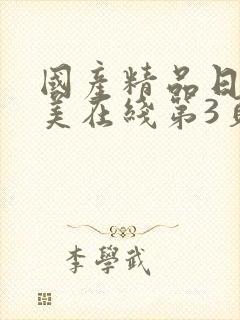 國產精品日
美在綫第3頁
李學武